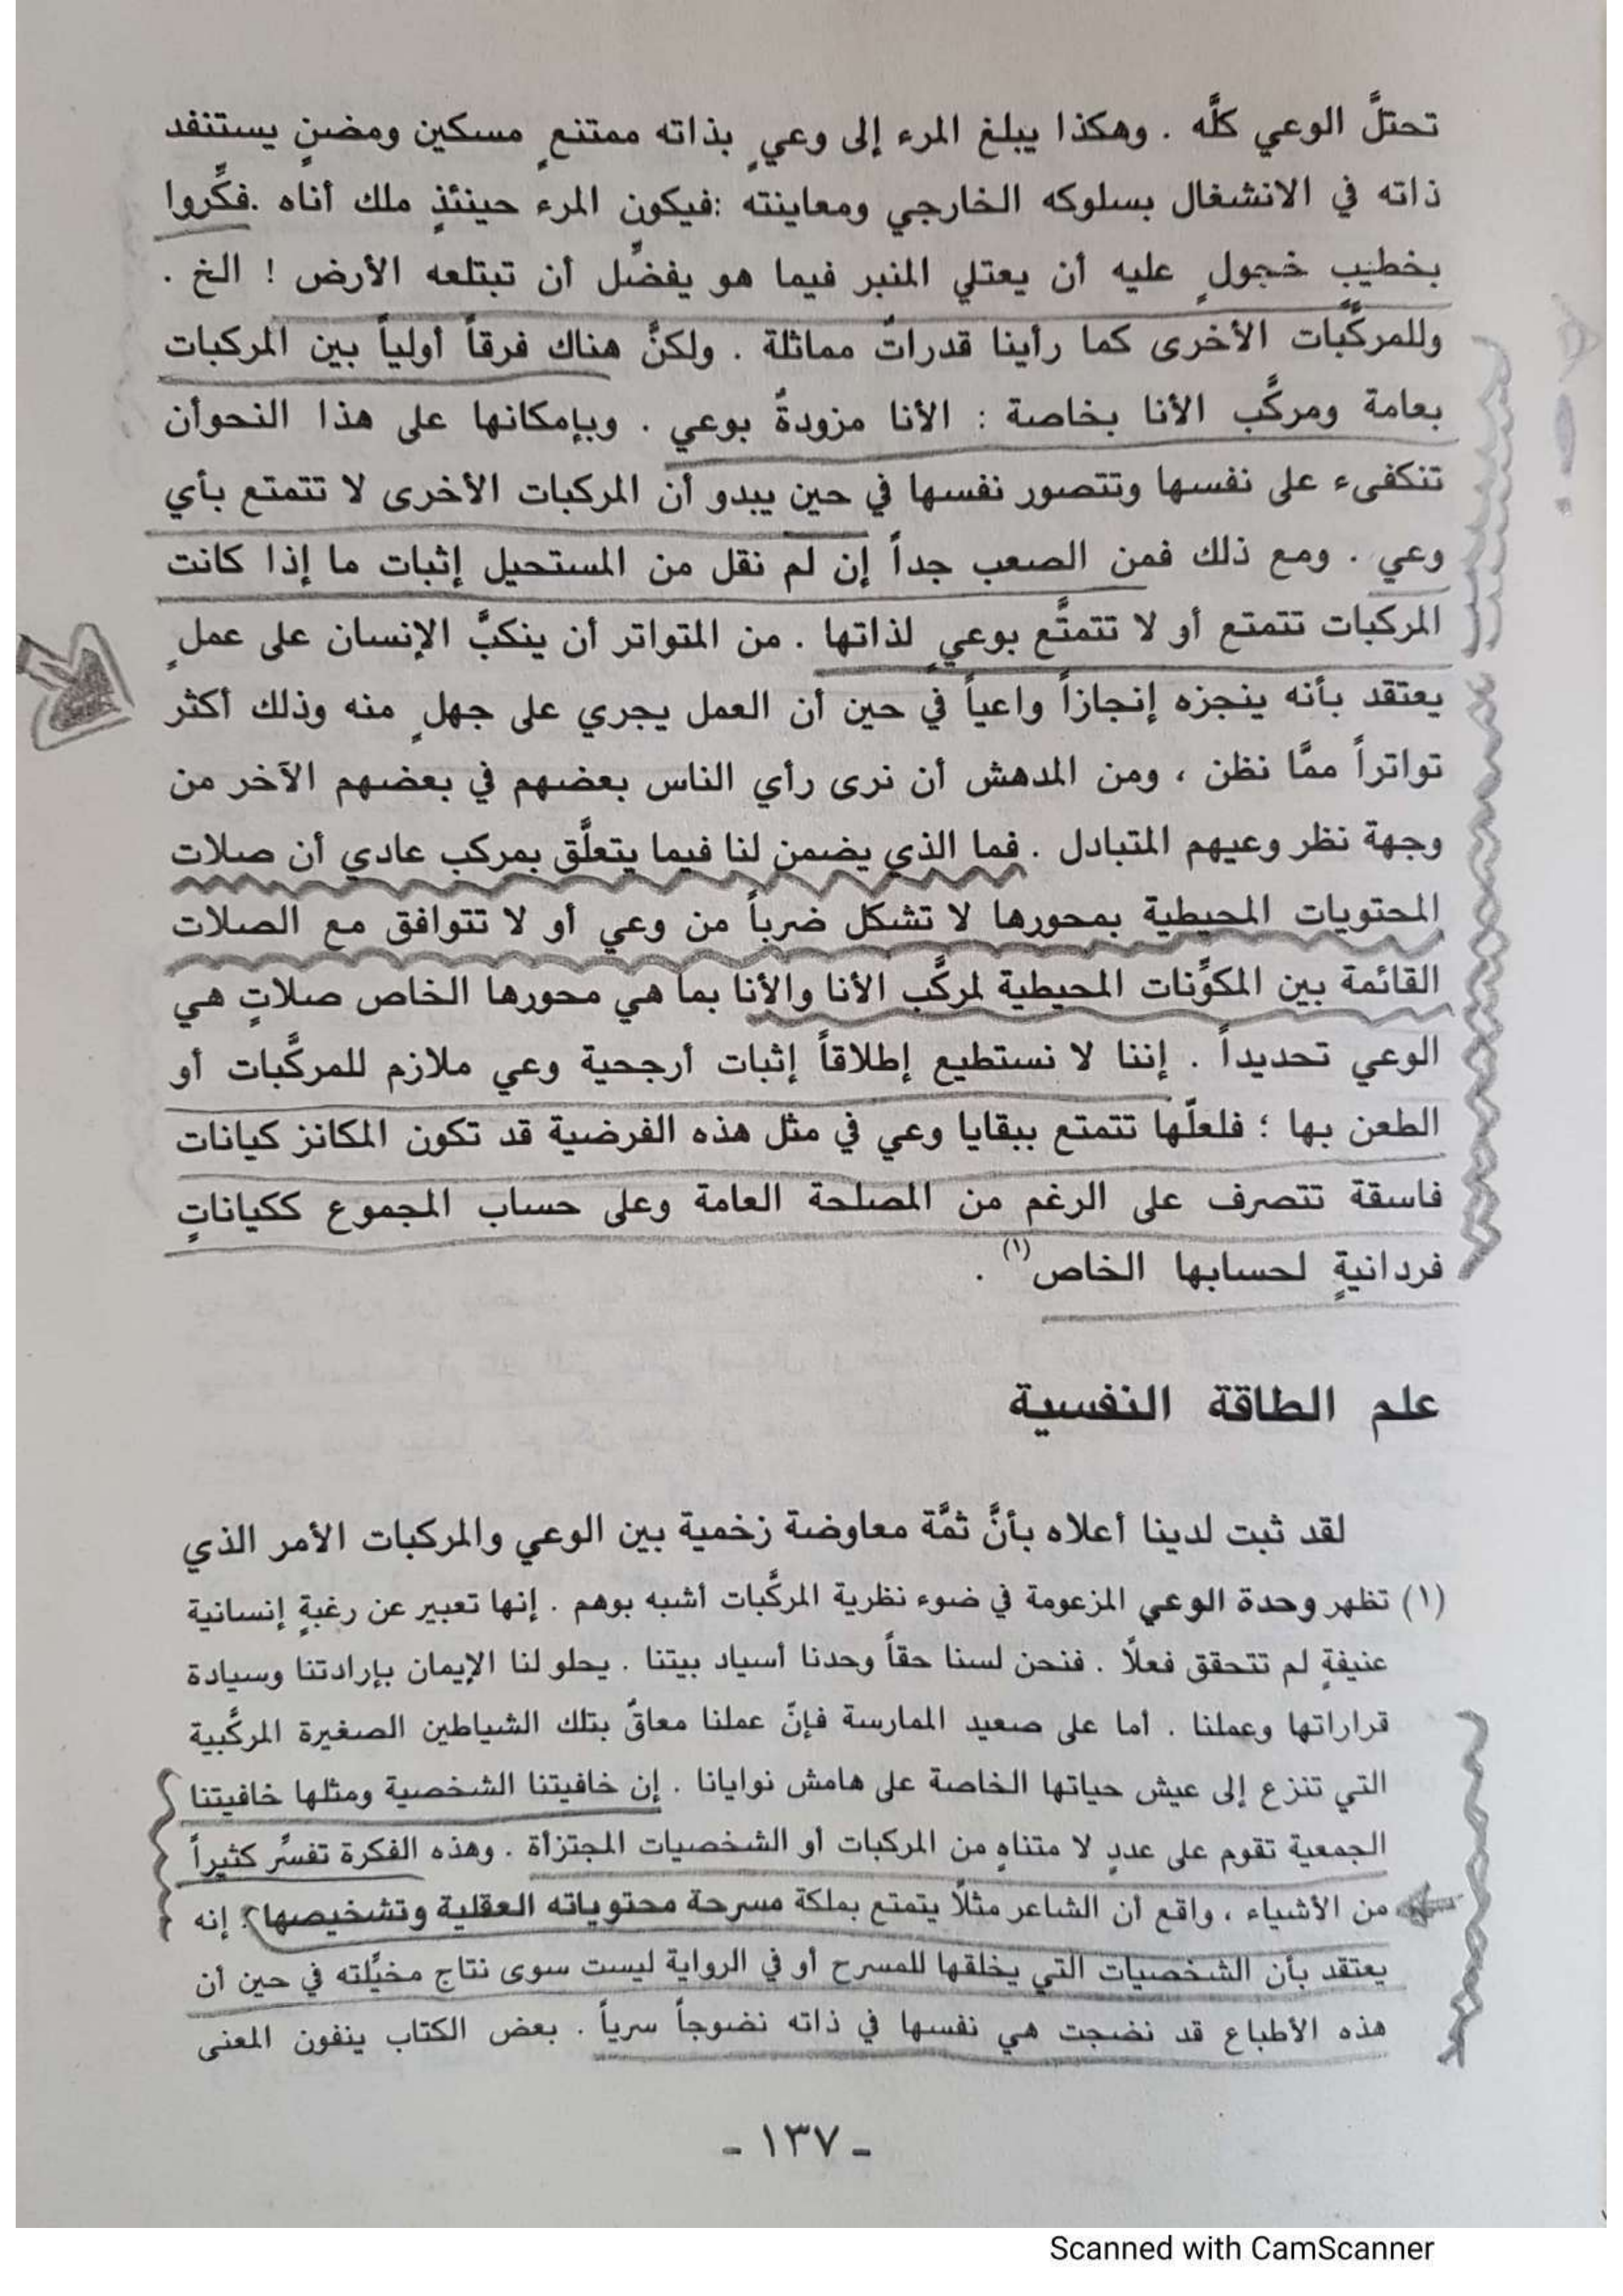 تحتلَّ الوعي كلَّه . وهكذا يبلغ المرء إلى وعيٍ بذاته ممتنعٍ مسكين ومضنٍ يستنفد
ذاته في الانشغال بسلوكه الخارجي ومعاينته :فيكون المرء حينئذٍ ملك أناه .فكِّروا
بخطيب خجولٍ عليه أن يعتلي المنبر فيما هو يفضِّل أن تبتلعه الأرض ! الخ .
وللمركَّبات الأخرى كما رأينا قدراتٌ مماثلة . ولكنَّ هناك فرقاً أولياً بين المركبات
بعامة ومركَّب الأنا بخاصة : الأنا مزودةٌ بوعي . وبإمكانها على هذا النحوأن
تنكفىء على نفسها وتتصور نفسها في حين يبدو أن المركبات الأخرى لا تتمتع بأي
وعي . ومع ذلك فمن الصعب جداً إن لم نقل من المستحيل إثبات ما إذا كانت
المركبات تتمتع أو لا تتمتَّع بوعيٍ لذاتها . من المتواتر أن ينكبَّ الإنسان على عملٍ
يعتقد بأنه ينجزه إنجازاً واعياً في حين أن العمل يجري على جهلٍ منه وذلك أكثر
تواتراً ممَّا نظن ، ومن المدهش أن نرى رأي الناس بعضهم في بعضهم الآخر من
وجهة نظر وعيهم المتبادل . فما الذي يضمن لنا فيما يتعلَّق بمركب عادي أن صلات
المحتويات المحيطية بمحورها لا تشكل ضرباً من وعي أو لا تتوافق مع الصلات
القائمة بين المكوِّنات المحيطية لمركَّب الأنا والأنا بما هي محورها الخاص صلاتٍ هي
الوعي تحديداً . إننا لا نستطيع إطلاقاً إثبات أرجحية وعي ملازم للمركَّبات أو
الطعن بها ؛ فلعلّها تتمتع ببقايا وعي في مثل هذه الفرضية قد تكون المكانز كيانات
فاسقة تتصرف على الرغم من المصلحة العامة وعلى حساب المجموع ككياناتٍ
فردانيةٍ لحسابها الخاص(١) .
علم الطاقة النفسية
لقد ثبت لدينا أعلاه بأنَّ ثمَّة معاوضة زخمية بين الوعي والمركبات الأمر الذي
(١) تظهر وحدة الوعي المزعومة في ضوء نظرية المركَّبات أشبه بوهم . إنها تعبير عن رغبةٍ إنسانية
عنيفةٍ لم تتحقق فعلاً . فنحن لسنا حقاً وحدنا أسياد بيتنا . يحلو لنا الإيمان بإرادتنا وسيادة
قراراتها وعملنا . أما على صعيد الممارسة فإنّ عملنا معاقٌ بتلك الشياطين الصغيرة المركَّبية
التي تنزع إلى عيش حياتها الخاصة على هامش نوايانا . إن خافيتنا الشخصية ومثلها خافيتنا
الجمعية تقوم على عددٍ لا متناهٍ من المركبات أو الشخصيات المجتزأة . وهذه الفكرة تفسَّر كثيراً
من الأشياء ، واقع أن الشاعر مثلاً يتمتع بملكة مسرحة محتوياته العقلية وتشخيصها . إنه
يعتقد بأن الشخصيات التي يخلقها للمسرح أو في الرواية ليست سوى نتاج مخيِّلته في حين أن
هذه الأطباع قد نضجت هي نفسها في ذاته نضوجاً سرياً . بعض الكتاب ينفون المعنى
- ١٣٧ -
Scanned with CamScanner